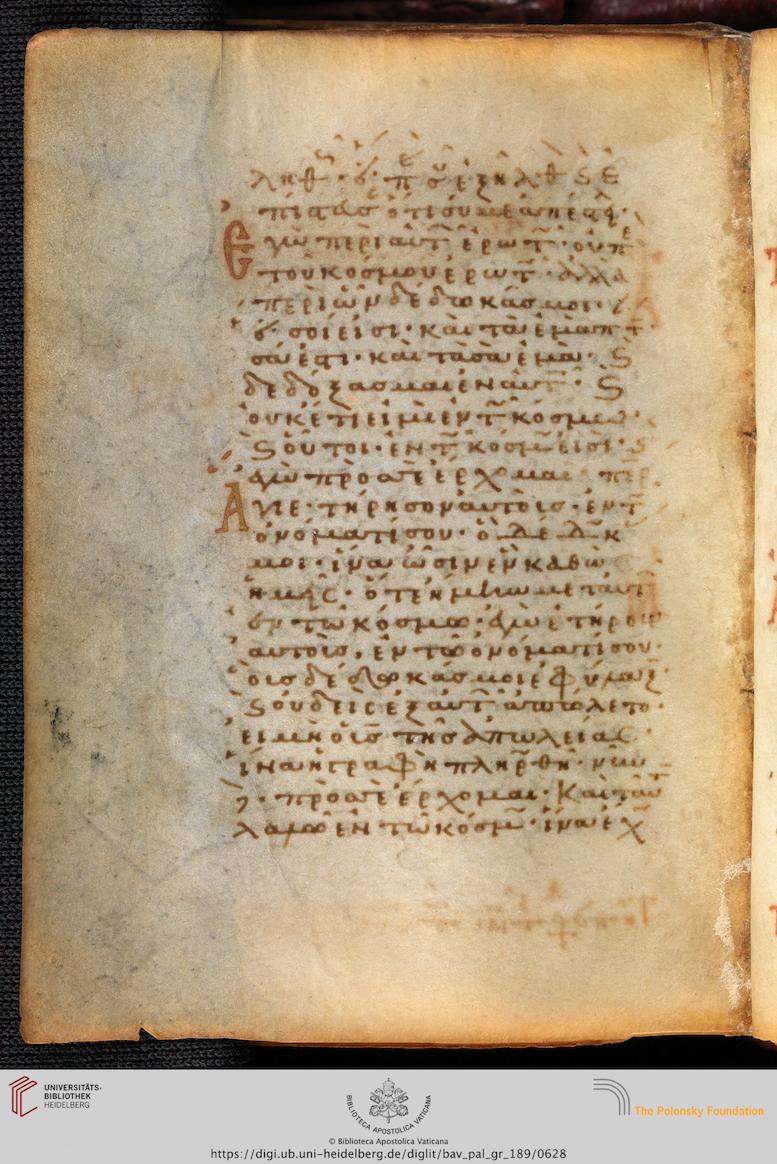 ληθ· ὅ· π σ ἐξηλθ ϛ ἐ
πίστευσ ὅτι σύ με ἀπέστ·
Εγὼ περὶ αὐτ ἐρωτ· οὐ πε
τοῦ κόσμου ἐρωτ· ἀλλα
περὶ ὧν δέδωκάσ μοι·
ὅ· σοί εἰσι· καὶ τὰ ἐμὰ πτ
σά ἐστι· καὶ τὰ σὰ ἐμὰ· ϛ
δεδόξασμαι ἐν αὐτ· ϛ
οὐκέτι εἰμὶ ἐν τ κόσμω·
ϛ οὗτοι· ἐν τ κοσμ εἰσὶ· ϛ
ἐγὼ πρόσ σε ἔρχομαι· περ
Αγιε· τήρησον αὐτοὺσ· ἐν τ
ὀνόματί σου·
μοι· ἵνα ὦσιν ἓν καθὼ
ἡμεῖς· ὅτε ἤμην μετ αὐτ
ἐν τῶ κόσμω· ἐγὼ ἐτήρουν
αὐτοὺσ, ἐν τῶ ὀνόματί σου·
οὓσ δέδωκάσ μοι ἐφύλαξ·
ϛ οὐδεὶς ἐξ αὐτ ἀπώλετο·
εἰ μὴ ὁ υἱὸσ τῆσ ἀπωλείας·
ἵνα ἡ γραφὴ πληρθῆ· νῦν
πρόσ σε ἔρχομαι· Καὶ ταῦ
λαλῶ ἐν τῶ κόσμ· ἵνα ἔχ
UNIVERSITÄTS-
BIBLIOTHEK
HEIDELBERG
BIBLIOTECA APOSTOLICA VATICANA
The Polonsky Foundation
© Biblioteca Apostolica Vaticana
https://digi.ub.uni-heidelberg.de/diglit/bav_pal_gr_189/0628